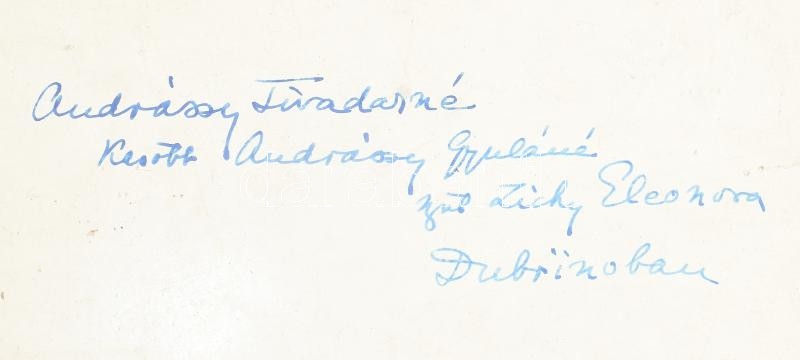 Andrássy Tivadarné
Később Andrássy Gyuláné
szül Zichy Eleonora
Dubrinoban